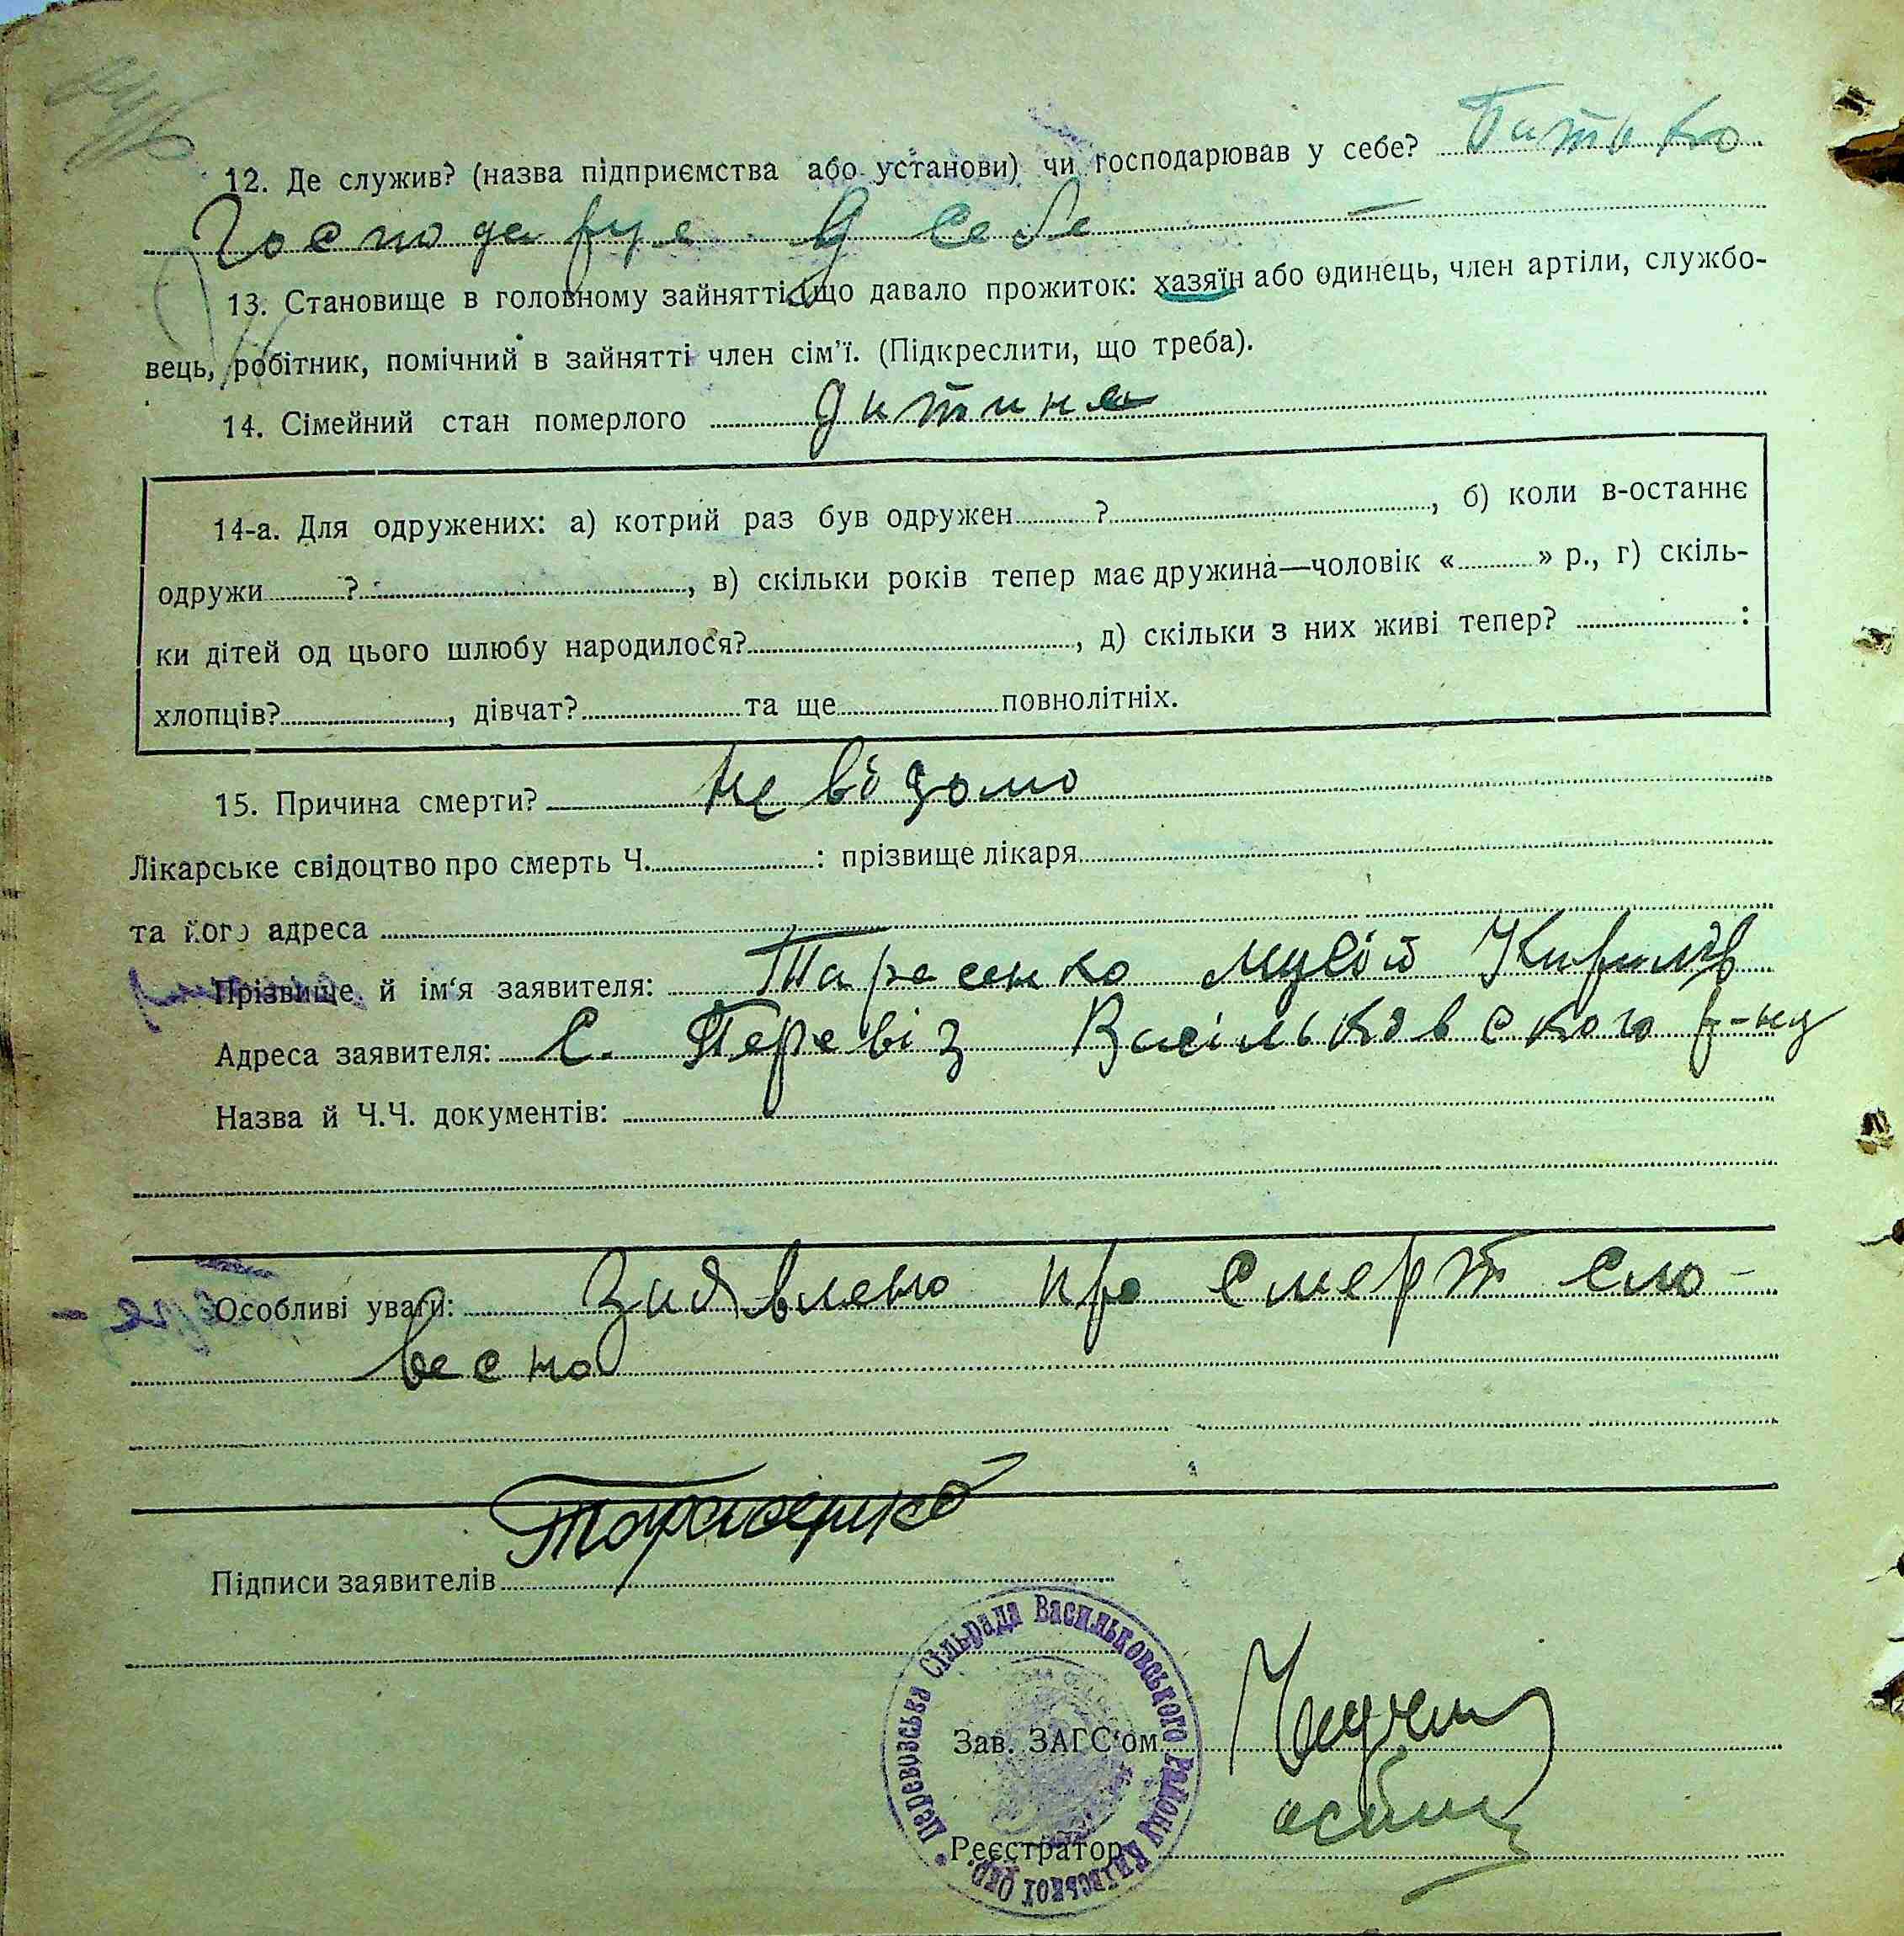 12. Де служив? (назва підприємства або установи) чи господарював у себе? Батько
Господарує У себе
13. Становище в головному зайнятті, що давало прожиток: хазяїн або одинець, член артіли, службо-
вець, робітник, помічний в зайнятті член сім'ї. (Підкреслити, що треба).
14. Сімейний стан померлого дитина
14-а. Для одружених: а) котрий раз був одружен ? , б) коли в-останнє
одружи ? , в) скільки років тепер має дружина—чоловік « » р., г) скіль-
ки дітей од цього шлюбу народилося? , д) скільки з них живі тепер? :
хлопців? , дівчат? та ще повнолітніх.
15. Причина смерти? Не відомо
Лікарське свідоцтво про смерть Ч. : прізвище лікаря
та його адреса
Прізвище й ім'я заявителя: Тарасенко Мусій Кирилів
Адреса заявителя: С. Перевіз Васільковского р-ну
Назва й Ч.Ч. документів:
Особливі уваги: Заявлено про смерт сло-
весно
Підписи заявителів Тарасенко
Перевозська Сільрада Васильковського Району Київської Окр.
Зав. ЗАГС'ом
Реєстратор